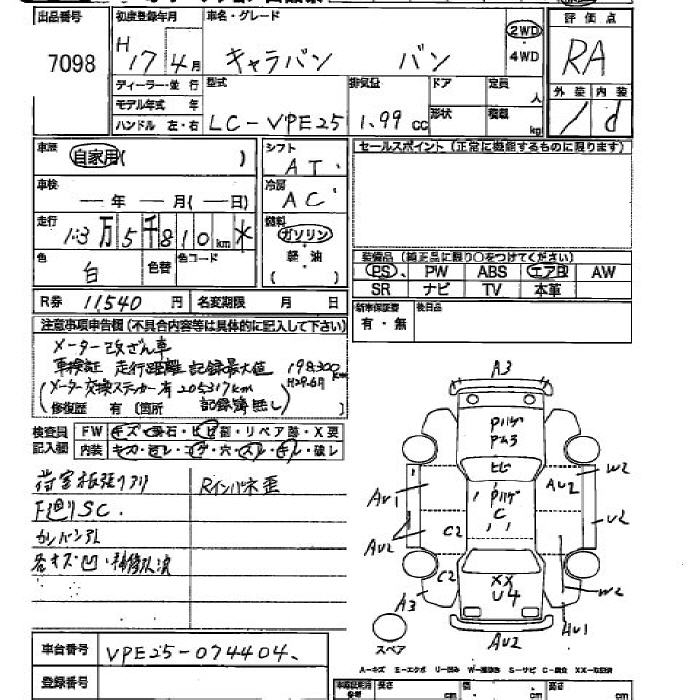 出品番号 初度登録年月 車名・グレード 評価点
7098 H17年4月 キャラバン バン 2WD・4WD RA
ディーラー・並行 型式 排気量 ドア 定員 人 外装 内装
モデル年式 年 形状 積載 kg
ハンドル 左・右 LC-VPE25 1.99 CC 1 d
車歴 自家用( ) シフト AT セールスポイント(正常に機能するものに限ります)
車検 ー年ー月(ー日) 冷房 AC
走行 13万5千810km 燃料 ガソリン・軽油( )
色 白 色替 色コード
装備品(純正品に限り○をつけてください)
PS、 PW ABS エアB AW
SR ナビ TV 本革
R券 11,540円 名変期限 月 日 新車保証書 有・無 後日品
注意事項申告欄(不具合内容等は具体的に記入して下さい)
メーター改ざん車
車検証 走行距離 記録最大値 198,300km
H29.6月
(メーター交換ステッカー有 205317km
修復歴 有 [箇所 記録簿無し)
検査員 FW キズ・飛石・ヒビ割・リペア跡・X要
記入欄 内装
荷室板張り R インパネ歪
下廻りSC.
カンバンアト
各キズ凹
A3
ヒビ
C
C2
C2
A3
AU1
AU2
AU2
W2
U2
W2
AU1
XX
U4
AU2
スペア
A-キズ E-エクボ U-凹み W-補修跡 S-サビ C-腐食 XX-交換済
車台番号 VPE25-074404
登録番号
長さ cm 幅 cm 高さ cm